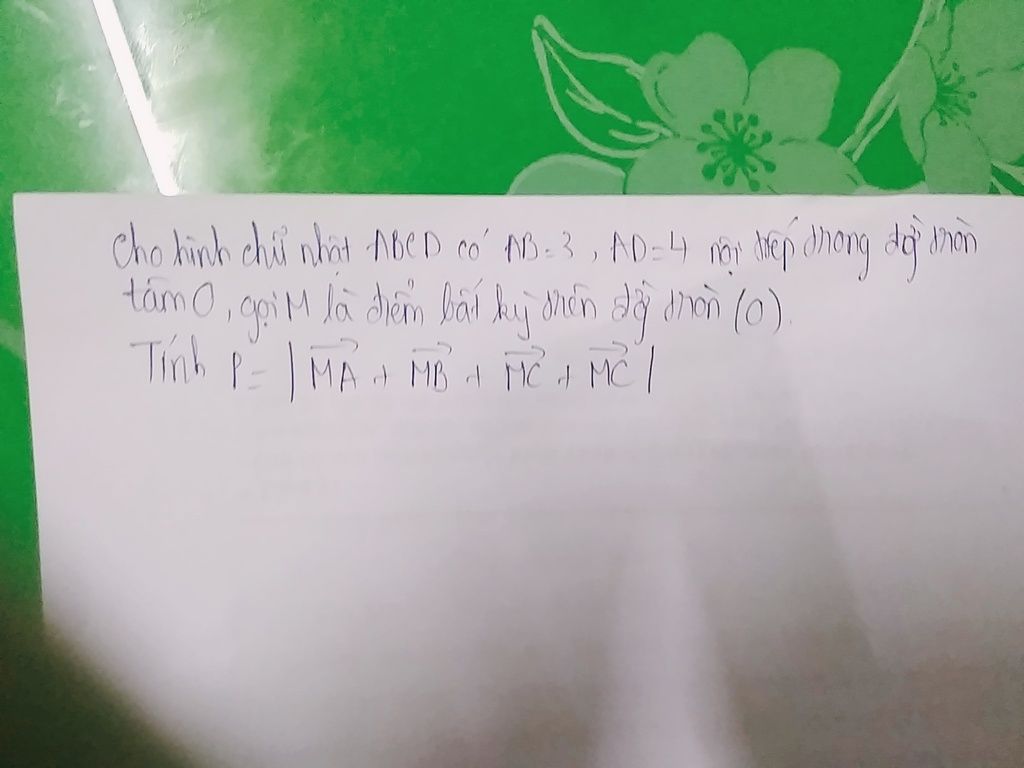 Cho hình chữ nhật ABCD có AB=3, AD=4 nội tiếp trong đg tròn
tâm O, gọi M là điểm bất kỳ trên đg tròn (O).
Tính P = |MA + MB + MC + MC|